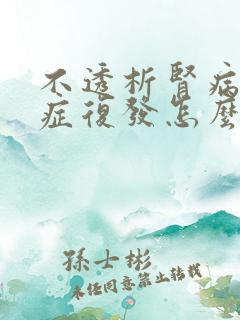 不透析腎病
症復發怎麼
孫士彬
未經同意禁止轉載